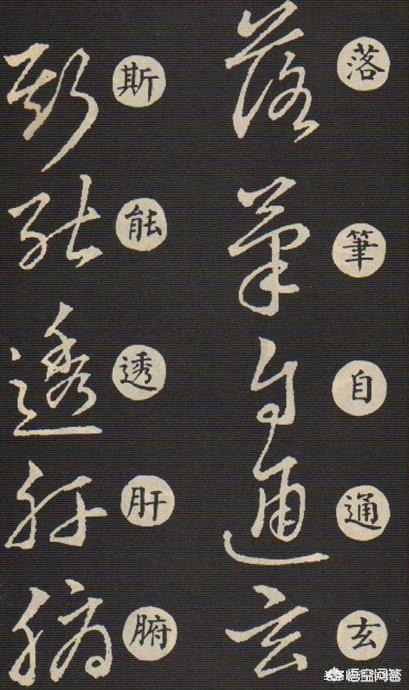 落筆自通玄
落筆自通玄
斯能透肝腑
斯能透肝腑
悟空问答